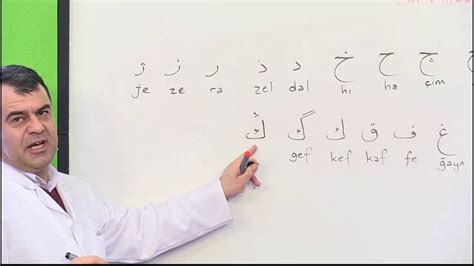 چ ح خ د ذ ر ز ژ
je ze ra zel dal hı ha çim
غ ف ق ك گ ڭ
gef kef kaf fe ğayn